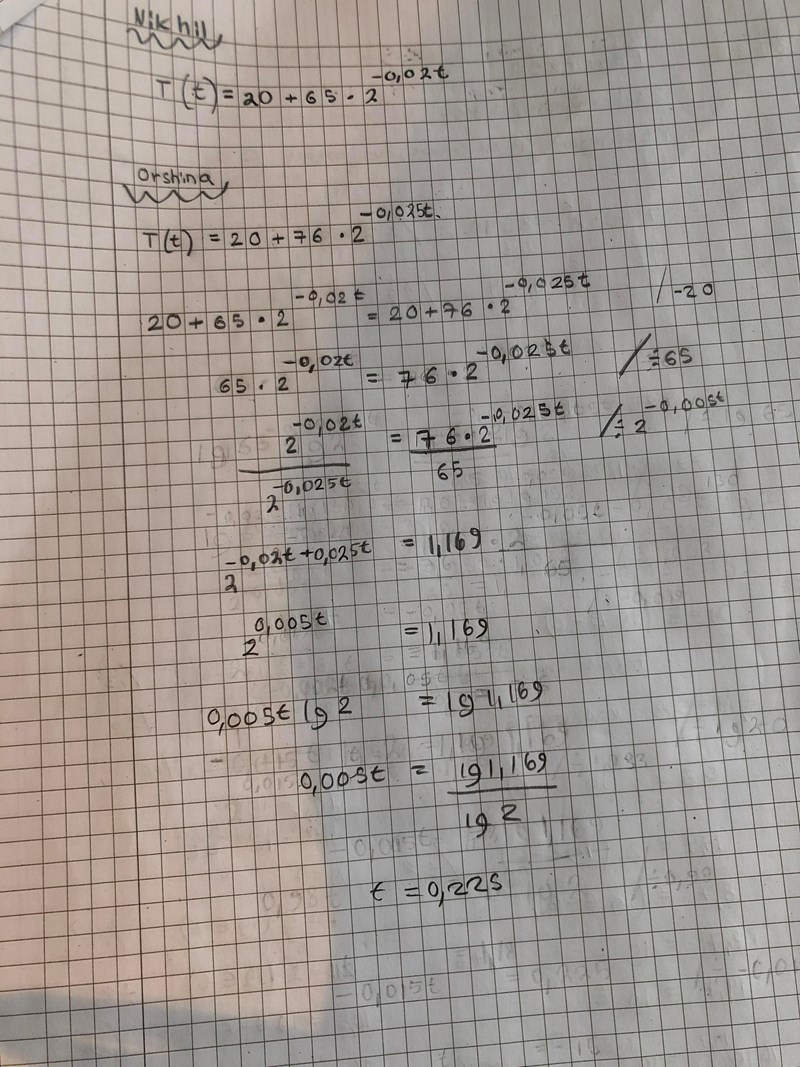 Nikhil
T(t) = 20 + 65 · 2^-0,02t
Orshina
T(t) = 20 + 76 · 2^-0,025t.
20 + 65 · 2^-0,02t = 20 + 76 · 2^-0,025t /-20
65 · 2^-0,02t = 76 · 2^-0,025t /÷65
2^-0,02t / 2^-0,025t = 76 · 2^-0,025t / 65 /÷ 2^-0,005t
2^-0,02t + 0,025t = 1,169
2^0,005t = 1,169
0,005t lg 2 = lg 1,169
0,005t = lg 1,169 / lg 2
t = 0,225